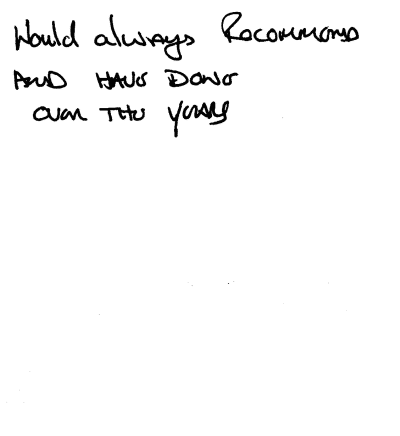 Would always Recommend
AND HAVE DONE
OVER THE YEARS